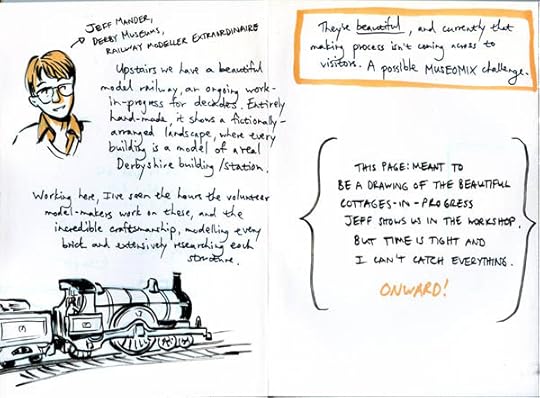 JEFF MANDER,
DERBY MUSEUMS,
RAILWAY MODELLER EXTRAORDINAIRE
Upstairs we have a beautiful
model railway, an ongoing work-
in-progress for decades. Entirely
hand-made, it shows a fictionally-
arranged landscape, where every
building is a model of a real
Derbyshire building/station.
Working here, I've seen the hours the volunteer
model-makers work on these, and the
incredible craftsmanship, modelling every
brick and extensively researching each
structure.
They're beautiful, and currently that
making process isn't coming across to
visitors. A possible MUSEOMIX challenge.
THIS PAGE: MEANT TO
BE A DRAWING OF THE BEAUTIFUL
COTTAGES-IN-PROGRESS
JEFF SHOWS US IN THE WORKSHOP.
BUT TIME IS TIGHT AND
I CAN'T CATCH EVERYTHING.
ONWARD!